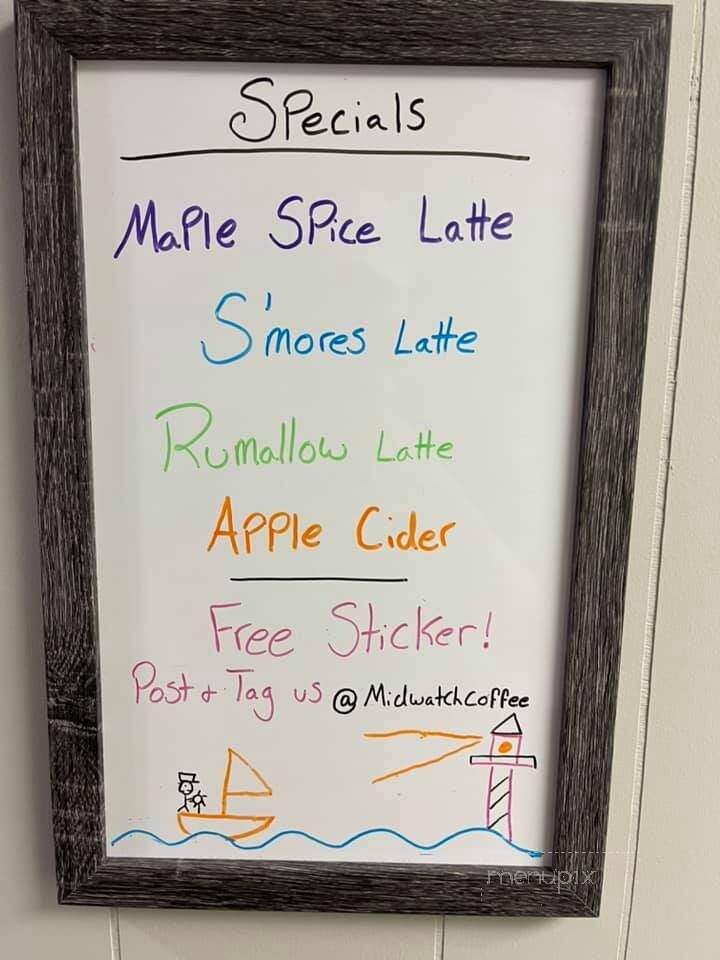 Specials
Maple Spice Latte
S'mores Latte
Rumallow Latte
Apple Cider
Free Sticker!
Post & Tag us @ Midwatchcoffee
menupix